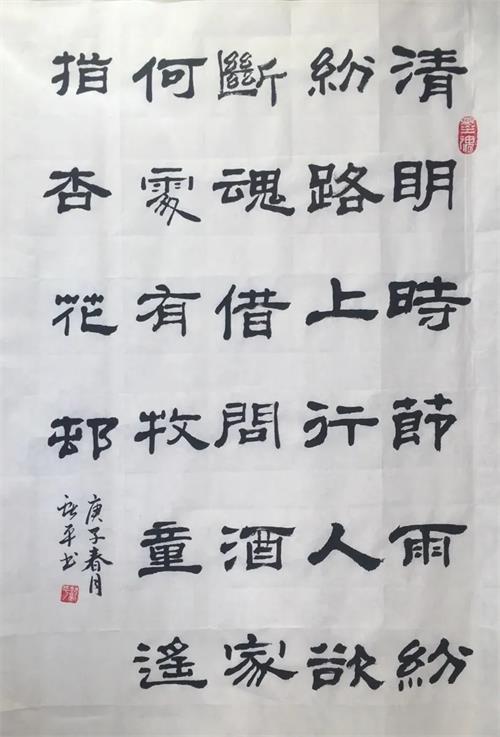 清明時節雨紛
紛路上行人欲
斷魂借問酒家
何處有牧童遙
指杏花邨
庚子春月
平书